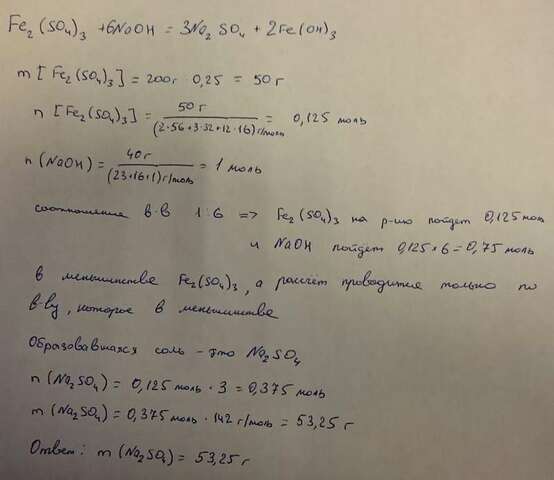 Fe₂(SO₄)₃ + 6NaOH = 3Na₂SO₄ + 2Fe(OH)₃
m[Fe₂(SO₄)₃] = 200г · 0,25 = 50 г
n[Fe₂(SO₄)₃] = 50 г / (2·56+3·32+12·16) г/моль = 0,125 моль
n(NaOH) = 40 г / (23+16+1) г/моль = 1 моль
соотношение в-в 1:6 => Fe₂(SO₄)₃ на р-ию пойдет 0,125 моль
и NaOH пойдет 0,125 × 6 = 0,75 моль
в меньшинстве Fe₂(SO₄)₃, а рассчёт проводится только по
в-ву, которое в меньшинстве
Образовавшаяся соль - это Na₂SO₄
n(Na₂SO₄) = 0,125 моль · 3 = 0,375 моль
m(Na₂SO₄) = 0,375 моль · 142 г/моль = 53,25 г
Ответ: m(Na₂SO₄) = 53,25 г